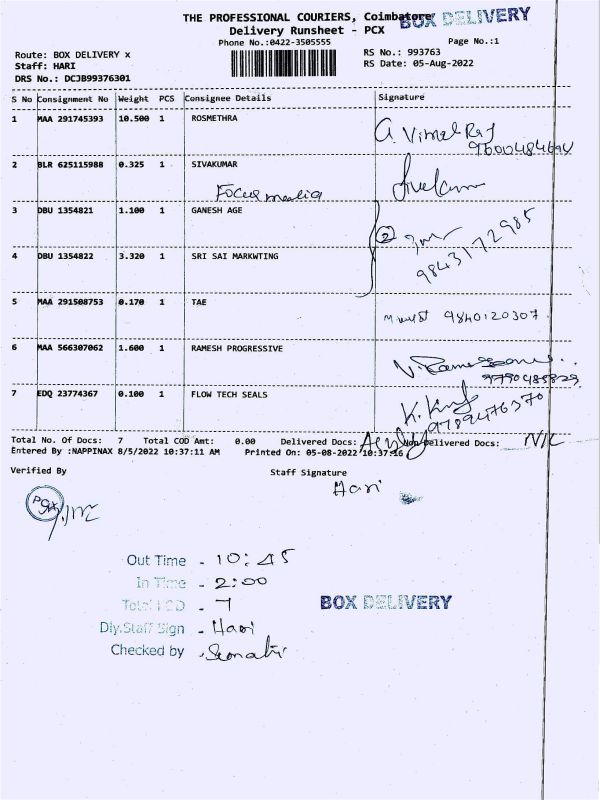 THE PROFESSIONAL COURIERS, Coimbatore
BOX DELIVERY
Delivery Runsheet - PCX
Phone No.:0422-3505555
Page No.:1
Route: BOX DELIVERY x
RS No.: 993763
Staff: HARI
RS Date: 05-Aug-2022
DRS No.: DCJB99376301
S No Consignment No Weight PCS Consignee Details Signature
1 MAA 291745393 10.500 1 ROSMETHRA
G. Vimal Raj
9600484694
2 BLR 625115988 0.325 1 SIVAKUMAR
Focus media
3 DBU 1354821 1.100 1 GANESH AGE
2
9843172985
4 DBU 1354822 3.320 1 SRI SAI MARKWTING
5 MAA 291508753 0.170 1 TAE
9840120307
6 MAA 566307062 1.600 1 RAMESH PROGRESSIVE
9790485829
7 EDQ 23774367 0.100 1 FLOW TECH SEALS
9789476370
Total No. Of Docs: 7 Total COD Amt: 0.00 Delivered Docs: Non Delivered Docs: NIL
Entered By :NAPPINAX 8/5/2022 10:37:11 AM Printed On: 05-08-2022 10:37:16
Verified By Staff Signature
Hari
Out Time - 10:45
In Time - 2:00
Total - 7
BOX DELIVERY
Dly.Staff Sign - Hari
Checked by